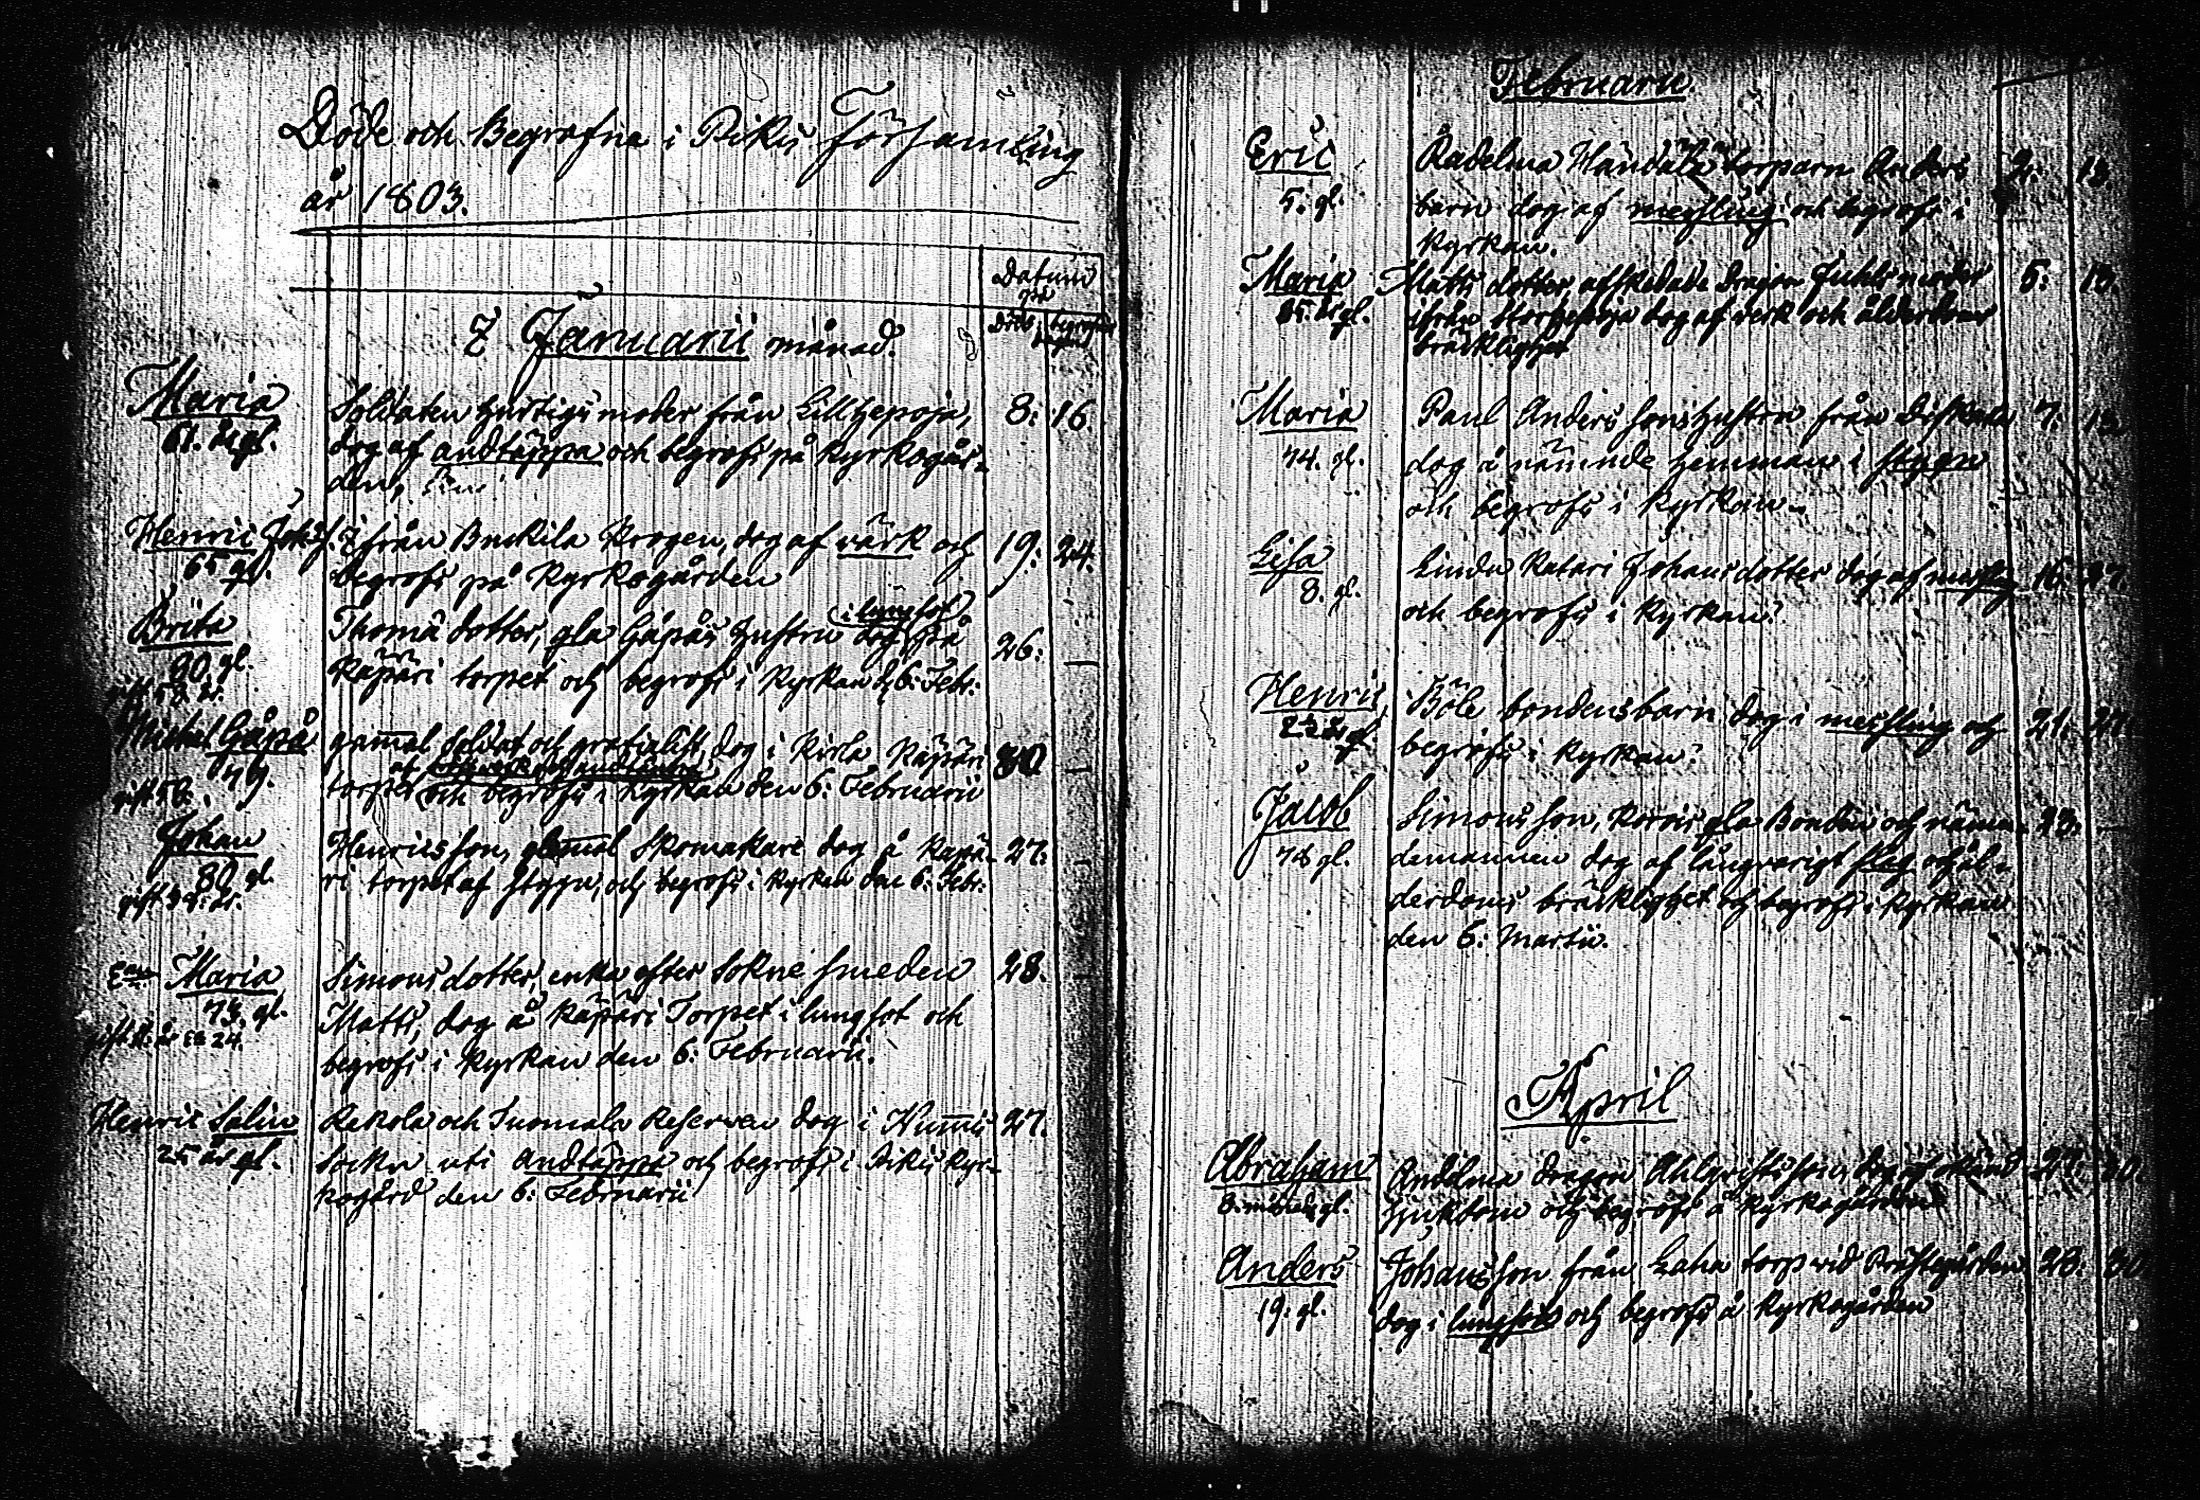 Döde och Begrafne i Pikis Församling
år 1803.
Datum
på
Döds begrafne
I Januarii månad.
Maria Soldaten Hurtigs moder från Lill Hepoja, 8: 16
61. år gl. dog af andtäppa och begrofs på Kyrkogår-
den,
Henric Johs s. från Buckila Krogen, dog af värk och 19. 24.
65 gl. begrofs på Kyrkogården
Brita Thomä dotter, gla Gåpås Hustru dog i lungsot på 26:
80. gl. Käpäri torpet och begrofs i Kyrkan d. 6: Febr:
gift 58. år.
Michel Gåpå gamal soldat och gratialist, dog i Kirla Käpäri 30
79. torpet och begrofs i Kyrkan den 6: Februarii
gift 58.
Johan Henrics son, gamal Skomakare dog å Käpä- 27:
80 gl. ri torpet af stygn, och begrofs i Kyrkan den 6: Febr:
gift 38: år.
Maria Simons dotter, enka efter Sokne smeden 28.
73. gl. Matts, dog å Käpäri Torpet i lungsot och
begrofs i Kyrkan den 6: Februarii.
Henric Salin Rekola och Tuomala Reserven dog i Nummis 27.
25 år gl. Sockn uti andtäppa och begrofs i Pikis Kyr-
kogård den 6: Februarii
Februarii.
Eric torparn Anders 2: 13.
5. gl. barn dog af meßling och begrofs i
Kyrkan.
Maria Matts dotter afskedade Dragon moder 5: 13.
85. år gl. ifrån dog af verk och ålderdoms
bräcklighet
Maria Paul Anders sons Hustru från 7. 13
74. gl. dog å nämnde Hemman i stygn
och begrofs i Kyrkan.
Lisa Johans dotter dog af meßling 16. 27
8. gl. och begrofs i Kyrkan.
Henric Böle bondens barn dog i meßling och 21: 27.
2½ år gl. begrofs i Kyrkan.
Jacob Simons son, gla Bonden och näm- 23.
78 gl. demannen dog af långvarigt och ål-
derdoms bräcklighet och begrofs i Kyrkan
den 6: Martii.
April
Abraham dragon son, dog af okänd 27. 30.
8. månad gl. Sjukdom och begrofs å Kyrkogården
Anders Johansson från Laha torp vid Prästegården 28. 30
19. gl. dog i lungsot och begrofs å Kyrkogården